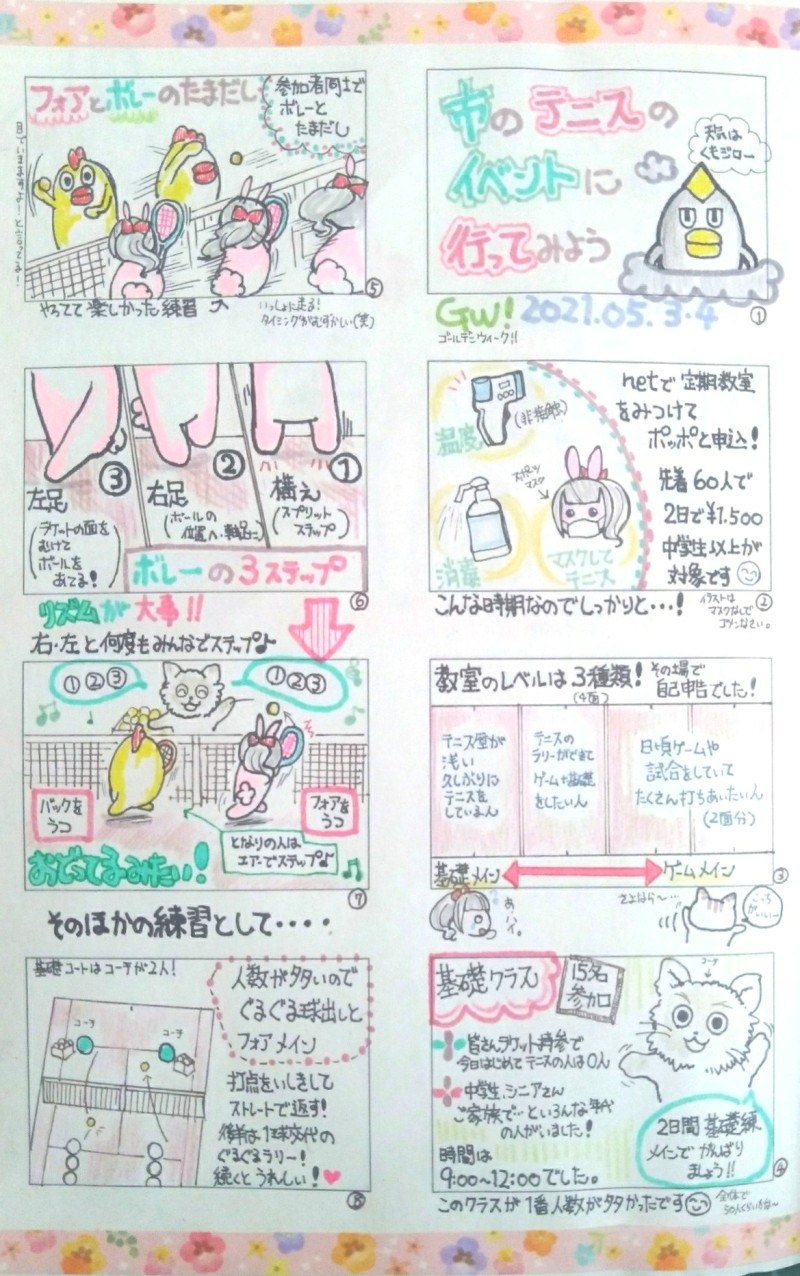 市のテニスの
イベントに
行ってみよう
天気は
くもジロー
①
GW! 2021.05.3.4
ゴールデンウィーク!!
netで定期教室
をみつけて
ポッポと申込!
先着60人で
2日で¥1.500
中学生以上が
対象です
温度
(非接触)
消毒
スポーツ
マスク
マスクして
テニス
②
こんな時期なのでしっかりと…!
イラストは
マスクなしで
ゴメンなさい。
教室のレベルは3種類!
(4面)
その場で
自己申告でした!
テニス歴が
浅い
久しぶりに
テニスを
している人
テニスの
ラリーができて
ゲームや基礎
をしたい人
日頃ゲームや
試合をしていて
たくさん打ちあいたい人
(2面分)
基礎メイン
ゲームメイン
③
あ、ハイ。
基礎クラス
15名
参加
コーチ
皆さんラケット持参で
今日はじめてテニスの人は0人
中学生、シニアさん
ご家族で…といろんな年代
の人がいました!
時間は
9:00~12:00でした。
2日間基礎練
メインでがんばり
ましょう!!
④
このクラスが1番人数が多かったです
全体で
50人くらいかな~
フォアとボレーのたまだし
参加者同士で
ボレーと
たまだし
⑤
やってて楽しかった練習
いっしょに走る!
タイミングがむずかしい(笑)
①
構え
(スプリット
ステップ)
②
右足
(ボールの
位置へ・軸足に)
③
左足
(ラケットの面を
むけて
ボールを
あてる!)
ボレーの3ステップ
⑥
リズムが大事!!
右・左と何度もみんなでステップ♪
①②③
①②③
バックを
うつ
フォアを
うつ
となりの人は
エアーでステップ♪
おどってるみたい!
⑦
そのほかの練習として・・・・
基礎コートはコーチが2人!
コーチ
コーチ
人数が多いので
ぐるぐる球出しと
フォアメイン
打点をいしきして
ストレートで返す!
後半は1球交代の
ぐるぐるラリー!
続くとうれしい!♥
⑧